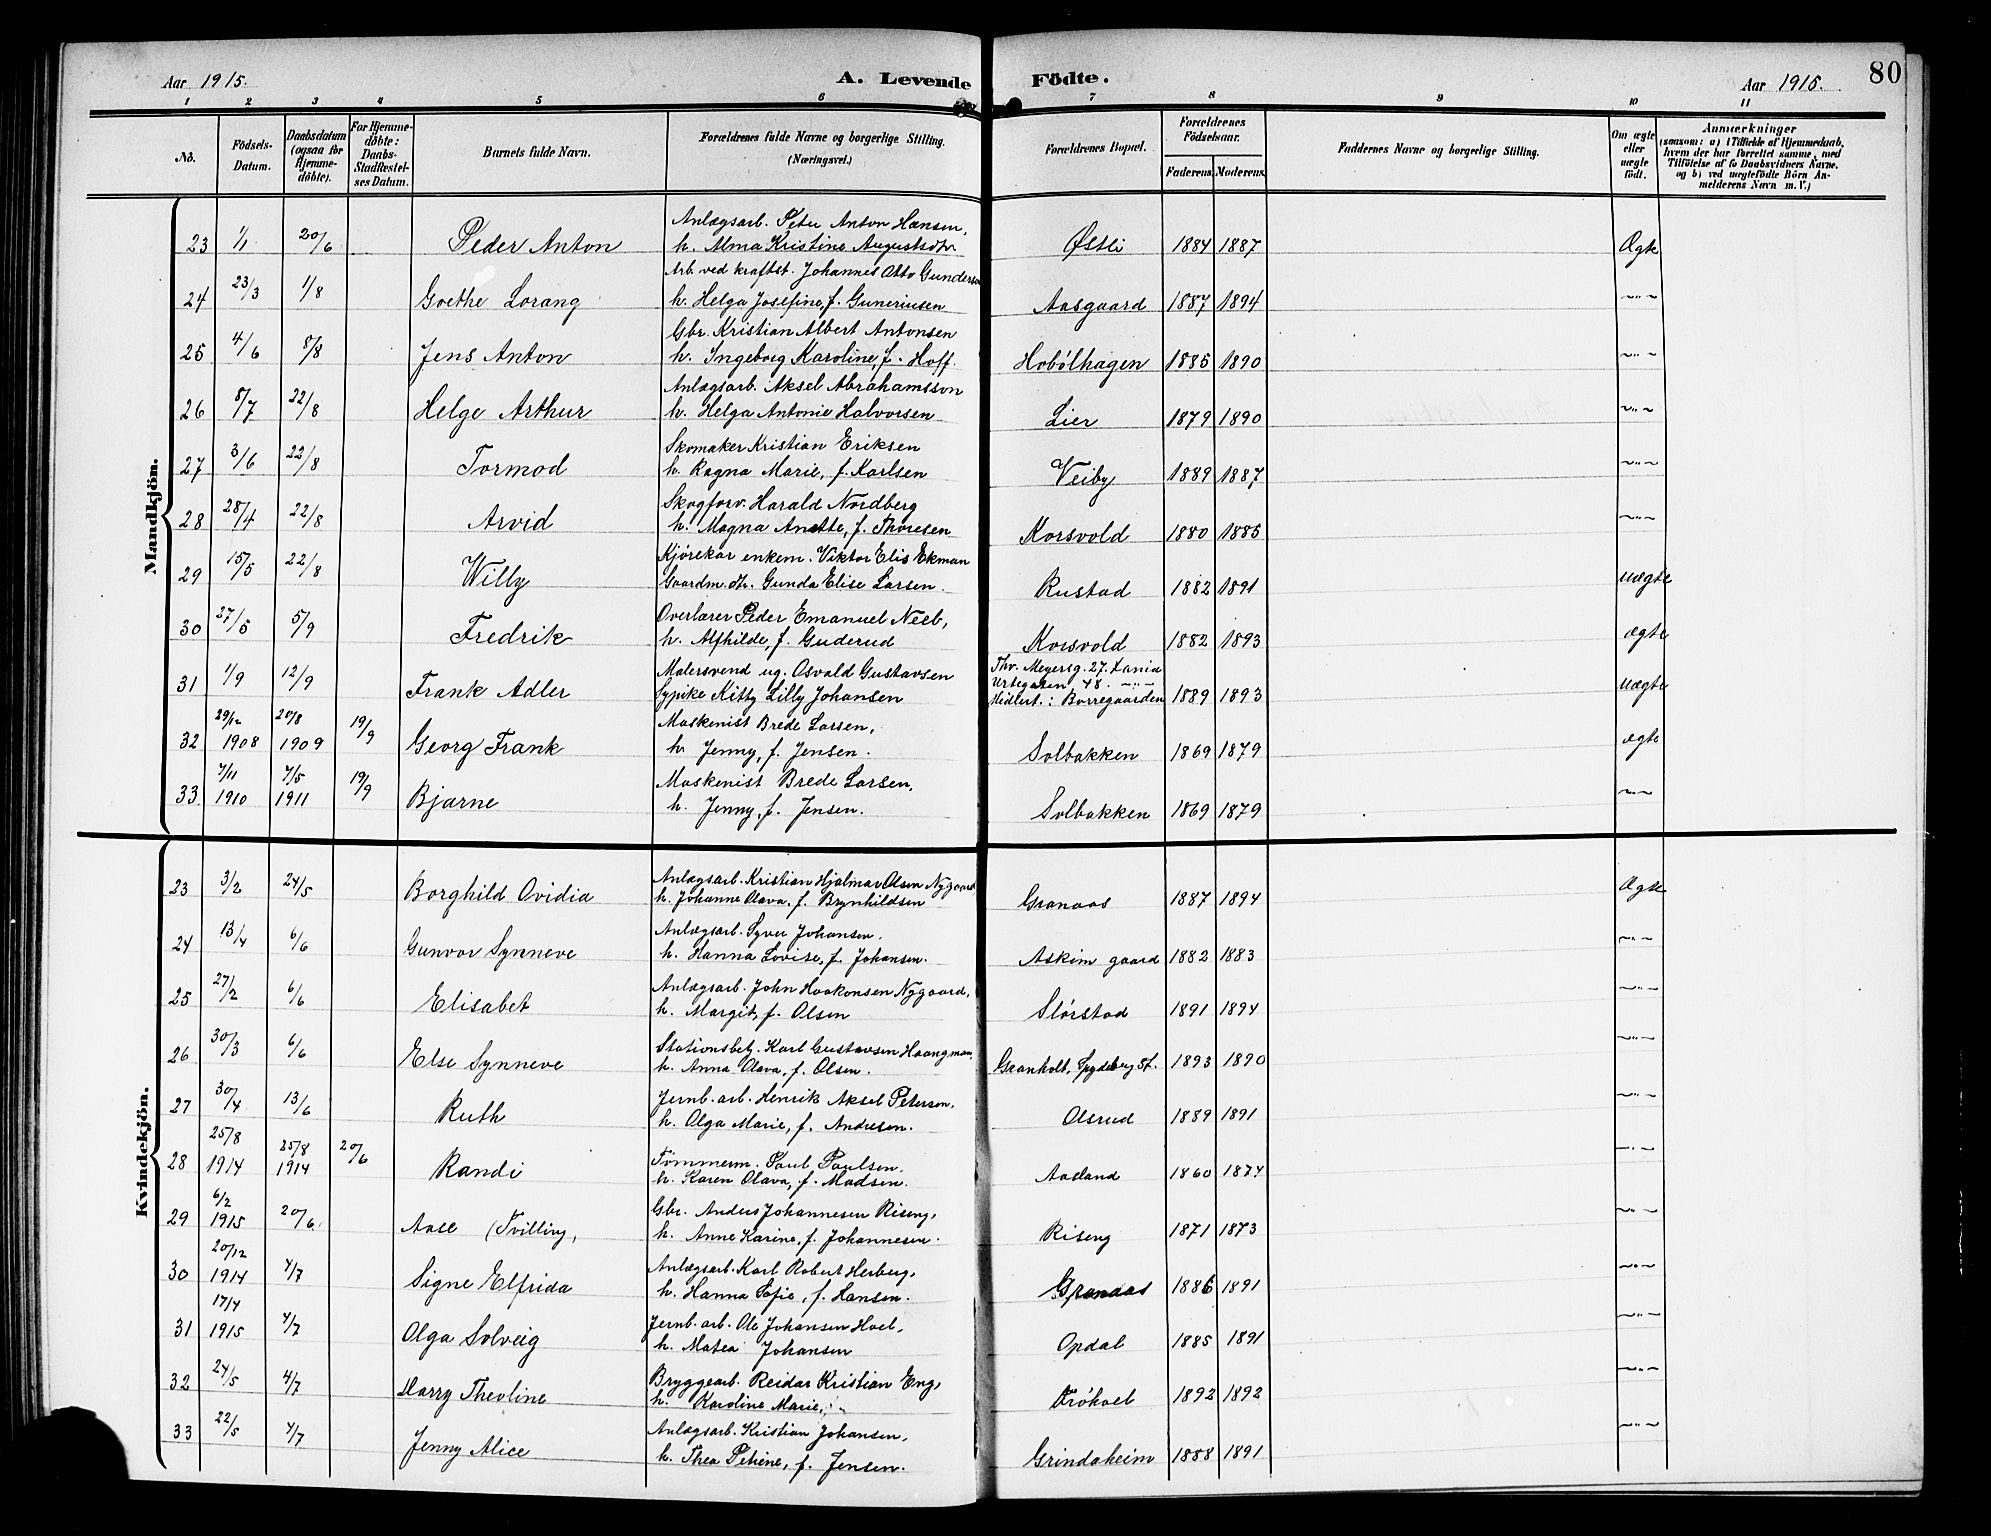 Aar 1915. A. Levende Födte. Aar 1915. 80
1 2 3 4 5 6 7 8 9 10 11
No. Födsels-Datum. Daabsdatum (ogsaa for Hjemme-döbte). For Hjemme-döbte: Daabs-Stadfæstel-ses Datum. Barnets fulde Navn. Forældrenes fulde Navne og borgerlige Stilling. (Næringsvei.) Forældrenes Bopæl. Forældrenes Födselsaar. Faderens. Moderens. Faddernes Navne og borgerlige Stilling. Om ægte eller uægte födt. Anmærkninger (saasom: a) i Tilfælde af Hjemmedaab, hvem der har forrettet samme, med Tilföielse af to Daabsvidners Navne, og b) ved uægtefödte Börn An-melderens Navn m. V.)
Mandkjön.
Anlægsarb. Peter Anton Hansen,
23 1/1 20/6 Peder Anton h. Alma Kristine Augustsdtr. Østli 1884 1887 Ægte
Arb. ved kraftst. Johannes Otto Gunders
24 23/3 1/8 Goethe Lorang h. Helga Josefine, f. Guneriusen Aasgaard 1887 1894 -"-
Gbr. Kristian Albert Antonsen
25 4/6 8/8 Jens Anton h. Ingeborg Karoline, f. Hoff. Hobölhagen 1885 1890 -"-
Anlægsarb. Aksel Abrahamsson
26 8/7 22/8 Helge Arthur h. Helga Antonie Halvorsen Lier 1879 1890 -"-
Skomaker Kristian Eriksen
27 3/6 22/8 Tormod h. Ragna Marie, f. Karlsen Veiby 1889 1887 -"-
Skogforv. Harald Nordberg
28 28/4 22/8 Arvid h. Magna Anette, f. Thoresen Korsvold 1880 1885 -"-
Kjørekar enkem. Viktor Elis Ekman
29 15/5 22/8 Willy Gaardm. dtr. Gunda Elise Larsen. Rustad 1882 1891 uægte
Overlærer Peder Emanuel Neeb,
30 27/5 5/9 Fredrik h. Alfhilde, f. Guderud Korsvold 1882 1893 ægte
Malersvend ug. Osvald Gustavsen Thv. Meyersg. 27. Xania
31 1/9 12/9 Frank Adler Sypike Kitty Lilly Johansen Urtegaten 48. -"- Midlert.: Borregaarden 1889 1893 uægte
Maskenist Brede Larsen,
32 29/12 1908 20/8 1909 19/9 Georg Frank h. Jenny, f. Jensen. Solbakken 1869 1879 ægte
Maskenist Brede Larsen,
33 7/11 1910 7/5 1911 19/9 Bjarne h. Jenny, f. Jensen. Solbakken 1869 1879 -"-
Kvindekjön.
Anlægsarb. Kristian Hjalmar Olsen Nygaard
23 3/2 24/5 Borghild Ovidia h. Johanne Olava, f. Brynhildsen Granaas 1887 1894 Ægte
Anlægsarb. Syver Johansen.
24 13/4 6/6 Gunvor Synneve h. Hanna Lovise, f. Johansen. Askim gaard 1882 1883 -"-
Anlægsarb. John Haakonsen Nygaard,
25 27/2 6/6 Elisabet h. Margit, f. Olsen Slørstad 1891 1894 -"-
Stationsbetj. Karl Gustavsen Haangman,
26 30/3 6/6 Else Synneve h. Anna Olava, f. Olsen. Granholt, Spydeberg St. 1893 1890 -"-
Jernb. arb. Henrik Aksel Petersen,
27 30/4 13/6 Ruth h. Olga Marie, f. Andresen. Olsrud 1889 1891 -"-
Tømmerm. Paul Paulsen.
28 25/8 1914 25/8 1914 20/6 Randi h. Karen Olava, f. Madsen. Aaland 1860 1874 -"-
Gbr. Anders Johannesen Riseng,
29 6/2 1915 20/6 Aase (Tvilling, h. Anne Karine, f. Johannesen. Riseng 1871 1873 -"-
Anlægsarb. Karl Robert Herberg,
30 20/12 1914 4/7 Signe Elfrida h. Hanna Sofie, f. Hansen. Granaas 1886 1891 -"-
Jernb. arb. Ole Johansen Hoel,
31 17/4 1915 4/7 Olga Solveig h. Matea Johansen Opdal 1885 1891 -"-
Bryggearb. Reidar Kristian Eng,
32 24/5 4/7 Harry Theoline h. Karoline Marie, Frøhoel 1892 1892 -"-
Anlægsarb. Kristian Johansen,
33 22/5 4/7 Jenny Alice h. Thea Petrine, f. Jensen. Grindaheim 1888 1891 -"-